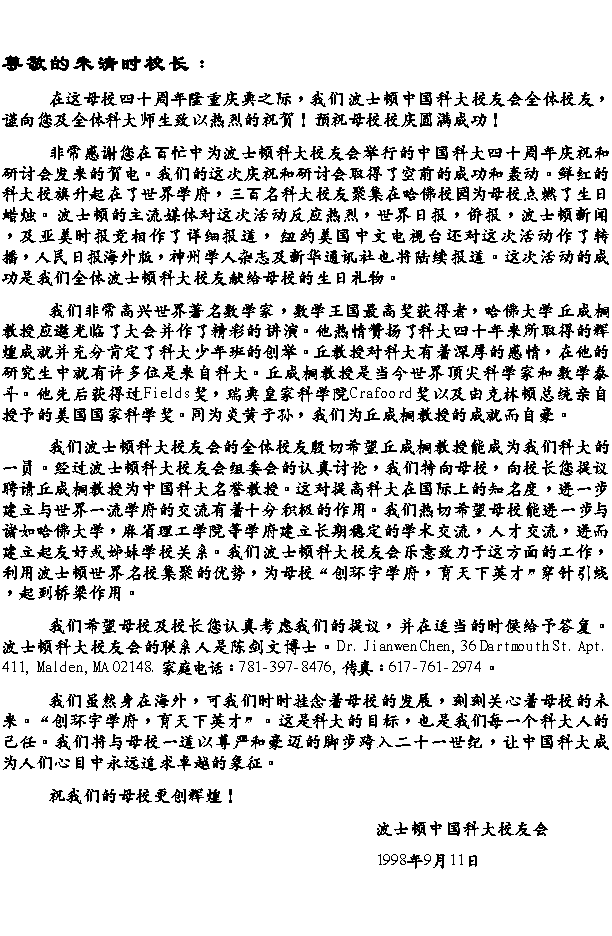 尊敬的朱清时校长：
在这母校四十周年隆重庆典之际，我们波士顿中国科大校友会全体校友，
谨向您及全体科大师生致以热烈的祝贺！预祝母校校庆圆满成功！
非常感谢您在百忙中为波士顿科大校友会举行的中国科大四十周年庆祝和
研讨会发来的贺电。我们的这次庆祝和研讨会取得了空前的成功和轰动。鲜红的
科大校旗升起在了世界学府，三百名科大校友聚集在哈佛校园为母校点燃了生日
蜡烛。波士顿的主流媒体对这次活动反应热烈，世界日报，侨报，波士顿新闻
，及亚美时报竞相作了详细报道，纽约美国中文电视台还对这次活动作了转
播，人民日报海外版，神州学人杂志及新华通讯社也将陆续报道。这次活动的成
功是我们全体波士顿科大校友献给母校的生日礼物。
我们非常高兴世界著名数学家，数学王国最高奖获得者，哈佛大学丘成桐
教授应邀光临了大会并作了精彩的讲演。他热情赞扬了科大四十年来所取得的辉
煌成就并充分肯定了科大少年班的创举。丘教授对科大有着深厚的感情，在他的
研究生中就有许多位是来自科大。丘成桐教授是当今世界顶尖科学家和数学泰
斗。他先后获得过Fields奖，瑞典皇家科学院Crafoord奖以及由克林顿总统亲自
授予的美国国家科学奖。同为炎黄子孙，我们为丘成桐教授的成就而自豪。
我们波士顿科大校友会的全体校友殷切希望丘成桐教授能成为我们科大的
一员。经过波士顿科大校友会组委会的认真讨论，我们特向母校，向校长您提议
聘请丘成桐教授为中国科大名誉教授。这对提高科大在国际上的知名度，进一步
建立与世界一流学府的交流有着十分积极的作用。我们热切希望母校能进一步与
诸如哈佛大学，麻省理工学院等学府建立长期稳定的学术交流，人才交流，进而
建立起友好或姊妹学校关系。我们波士顿科大校友会乐意致力于这方面的工作，
利用波士顿世界名校集聚的优势，为母校“创环宇学府，育天下英才”穿针引线
，起到桥梁作用。
我们希望母校及校长您认真考虑我们的提议，并在适当的时候给予答复。
波士顿科大校友会的联亲人是陈剑文博士。Dr. Jianwen Chen, 36 Dartmouth St. Apt.
411, Malden, MA 02148. 家庭电话：781-397-8476, 传真：617-761-2974。
我们虽然身在海外，可我们时时挂念着母校的发展，刻刻关心着母校的未
来。“创环宇学府，育天下英才”。这是科大的目标，也是我们每一个科大人的
己任。我们将与母校一道以尊严和豪迈的脚步跨入二十一世纪，让中国科大成
为人们心目中永远追求卓越的象征。
祝我们的母校更创辉煌！
波士顿中国科大校友会
1998年9月11日